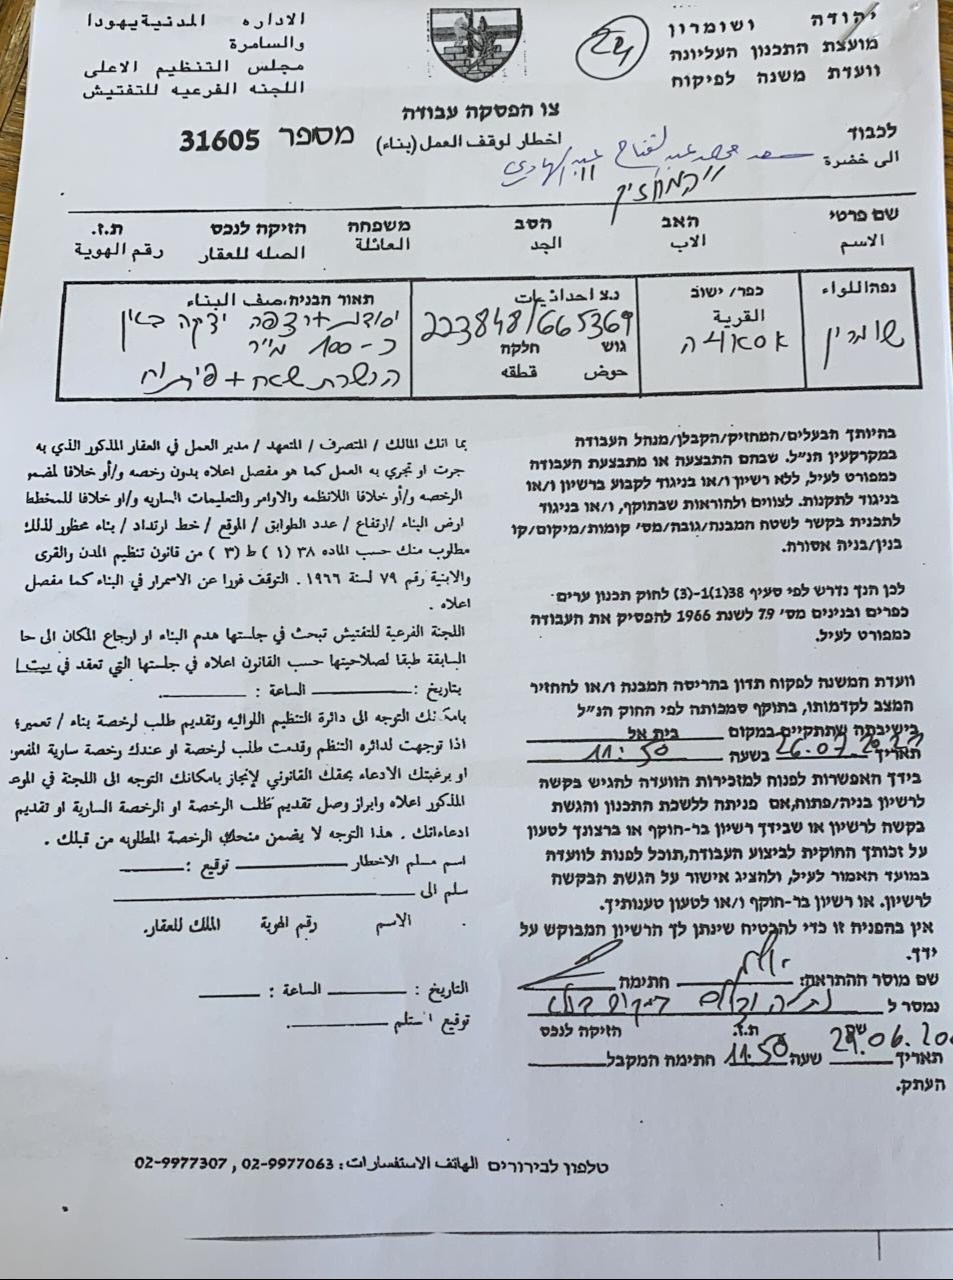 יהודה ושומרון
מועצת התכנון העליונה
וועדת משנה לפיקוח
24
الاداره المدنية يهودا
والسامرة
مجلس التنظيم الاعلى
اللجنه الفرعيه للتفتيش
צו הפסקה עבודה
اخطار لوقف العمل (بناء)
מספר 31605
לכבוד
الى خضرة
سعد محمد عبد الفتاح عبد الهادي
"המחזיק"
שם פרטי האב הסב משפחה הזיקה לנכס ת.ז.
الاسم الاب الجد العائلة الصله للعقار رقم الهوية
נפה اللواء
שומרון
כפר/ ישוב
القرية
נ.צ احداثيات
223848/665369
גוש חלקה
حوض قطقه
תאור הבניה, صف البناء
יסודות + רצפה יצקה
כ-100 מ"ר
הכשרת שטח + פיתוח
בהיותך הבעלים/המחזיק/הקבלן/מנהל העבודה
במקרקעין הנ"ל. שבהם התבצעה או מתבצעת העבודה
כמפורט לעיל, ללא רשיון ו/או בניגוד לקבוע ברשיון ו/או
בניגוד לתקנות. לצווים ולהוראות שבתוקף, ו/או בניגוד
לתכנית בקשר לשטח המבנה/גובה/מס' קומות/מיקום/קו
בנין/בניה אסורה.
לכן הנך נדרש לפי סעיף 38(1)-(3) לחוק תכנון ערים
כפרים ובנינים מס' 79 לשנת 1966 להפסיק את העבודה
כמפורט לעיל.
וועדת המשנה לפקוח תדון בהריסה המבנה ו/או להחזיר
המצב לקדמותו, בתוקף סמכותה לפי החוק הנ"ל
בישיבתה שתתקיים במקום בית אל
תאריך בשעה 11:50
בידך האפשרות לפנות למזכירות הוועדה להגיש בקשה
לרשיון בניה/פתוח, אם פניתה ללשכת התכנון והגשת
בקשה לרשיון או שבידך רשיון בר-חוקף או ברצונך לטעון
על זכותך החוקית לביצוע העבודה, תוכל לפנות לוועדה
במועד האמור לעיל, ולהציג אישור על הגשת הבקשה
לרשיון. או רשיון בר-חוקף ו/או לטעון טענותיך.
אין בהפניה זו כדי להבטיח שינתן לך הרשיון המבוקש על
ידך.
שם מוסר ההתראה: חתימה
נמסר ל
שם ת.ז. הזיקה לנכס
תאריך שעה 11:50 חתימה המקבל
העתק.
بما انك المالك / المتصرف / المتعهد / مدير العمل في العقار المذكور الذي به
جرت او تجري به العمل كما هو مفصل اعلاه بدون رخصه و/أو خلافا لمضم
الرخصه و/أو خلافا للانظمه والاوامر والتعليمات الساريه و/او خلافا للمخطط
ارض البناء /ارتفاع / عدد الطوابق / الموقع / خط ارتداد / بناء محظور لذلك
مطلوب منك حسب الماده ٣٨ (١) ط (٣) من قانون تنظيم المدن والقرى
والابنية رقم ٧٩ لسنة ١٩٦٦. التوقف فورا عن الاسمرار في البناء كما مفصل
اعلاه .
اللجنة الفرعية للتفتيش تبحث في جلستها هدم البناء او ارجاع المكان الى حا
السابقة طبقا لصلاحيتها حسب القانون اعلاه في جلستها التي تعقد في بيت ا
بتاريخ : الساعة :
بامكانك التوجه الى دائرة التنظيم اللوائيه وتقديم طلب لرخصة بناء / تعمير؛
اذا توجهت لدائره التنظم وقدمت طلب لرخصة او عندك رخصة سارية المفعو
او برغبتك الادعاء بحقك القانوني لإنجاز بامكانك التوجه الى اللجنة في الموع
المذكور اعلاه وابراز وصل تقديم طلب الرخصة او الرخصة السارية او تقديم
ادعاءاتك . هذا التوجه لا يضمن منحك الرخصة المطلوبه من قبلك .
اسم مسلم الاخطار توقيع :
سلم الى
الاسم رقم الهوية الملك للعقار.
التاريخ : الساعة :
توقيع المستلم
טלפון לבירורים الهاتف الاستفسارات : 02-9977063 , 02-9977307